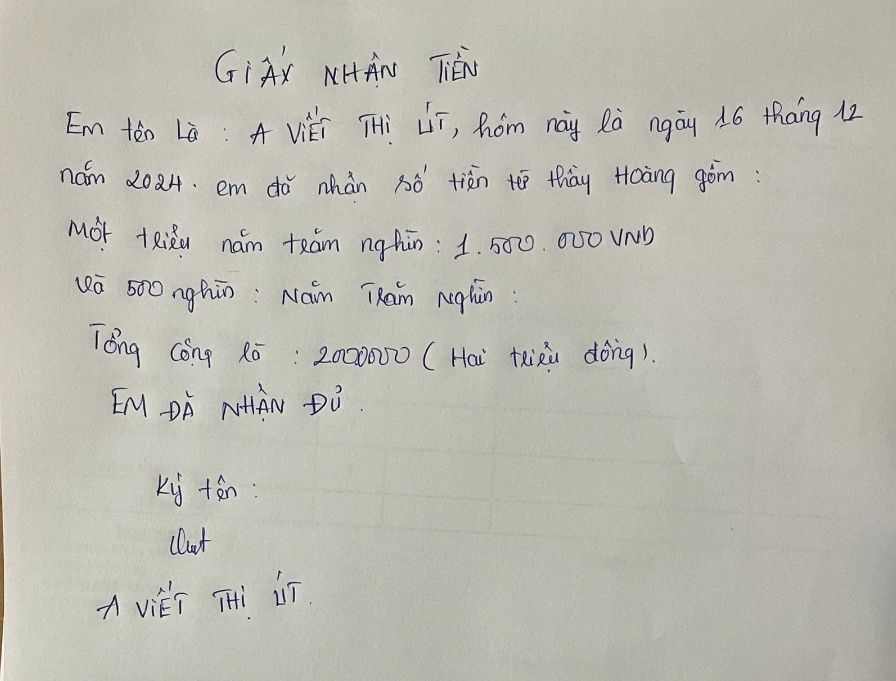 GIẤY NHẬN TIỀN
Em tên Là : A VIẾT THỊ ÚT, hôm này là ngày 16 tháng 12
năm 2024. em đã nhận số tiền từ thầy Hoàng gồm :
Một triệu năm trăm nghìn : 1.500.000 VNĐ
Và 500 nghìn : Năm Trăm Nghìn :
Tổng Cộng là : 2000000 ( Hai triệu đồng).
EM ĐÃ NHẬN ĐỦ.
Ký tên :
Út
A VIẾT THỊ ÚT.